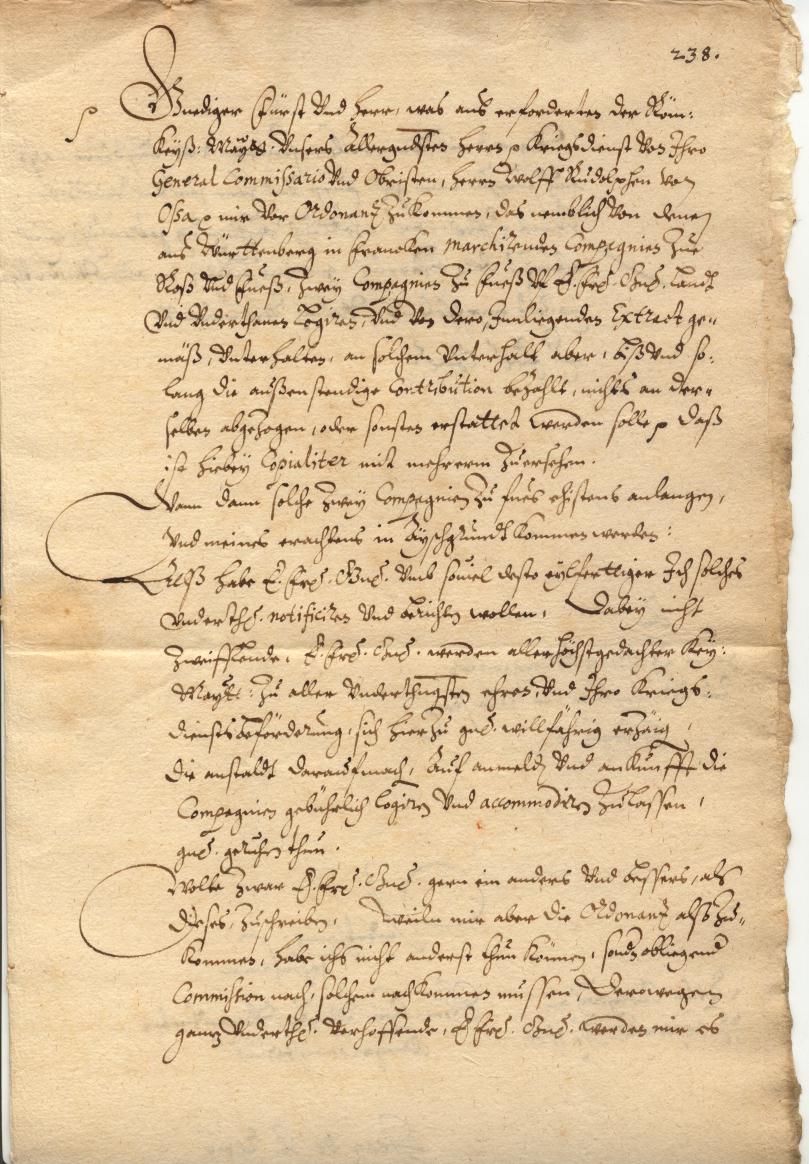 238.
Gnediger Fürst Und Herr, was aus erforderten der Röm:
Keyß: Mayt: Unsers Allergndsten Herrn p Kriegsdienst Von Ihro
General Commissario Und Obristen, Herrn Wolff Rudolphen Von
Ossa p mir Vor Ordonantz Zukommen, das nemblich Von denen
aus Württenberg in Francken marchirenden Compagnien Zue
Roß Und Fueß, Zwey Compagnien Zu Fueß E. Frl. Gnd. Landt
Und Underthanen Logiren, Und Von dero Innliegenden Extract ge=
mäß, Unterhalten, an solchem Unterhalt aber, biß Und so=
lang die außenstendige Contribution bezahlt, nichts an der=
selben abgezogen, oder sonsten erstattet werden solle p daß
ist hiebey Copialiter mit mehrerm Zuersehen.
Wann dann solche Zwey Compagnien Zu fues ehistens anlangen,
Und meines erachtens in Ayschgrundt kommen werden:
Alß habe E. Frl. Gnd. Umb soviel desto eylfertiger Ich solches
Underthl. notificiren Und berichten wollen, Dabey nicht
Zweifflende, E. Frl. Gnd. werden allerhöchstgedachter Key:
Mayt: Zu aller Underthngsten ehren, Und Ihro Kriegs=
diensts beförderung, sich hierZu gnd. willfährig erzaig,
die anstaldt darauf mach, Auf anmeld Und ankunfft die
Compagnien gebührlich logiren Und accommodiren Zulassen,
gnd. geruhen thun.
Wolte Zwar E. Frl. Gnd. gern ein anders Und bessers, als
dieses, Zuschreiben, Weiln mir aber die Ordonantz alß Zu=
kommen, habe ichs nicht anderst thun können, sondn obliegend
Commission nach, solchem nachkommen mussen, Derowegen
gantz Underthl. Verhoffende, E. Frl. Gnd. werden mir es